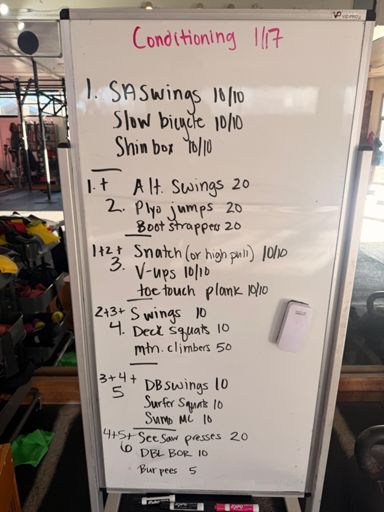 Conditioning 1/17
1. SA Swings 10/10
Slow bicycle 10/10
Shin box 10/10
1.+ Alt. Swings 20
2. Plyo jumps 20
Boot strappers 20
1+2+ Snatch (or high pull) 10/10
3. V-ups 10/10
toe touch plank 10/10
2+3+ Swings 10
4. Deck squats 10
mtn. climbers 50
3+4+ DB swings 10
5 Surfer Squats 10
Sumo MC 10
4+5+ See Saw presses 20
6 DBL BOR 10
Burpees 5